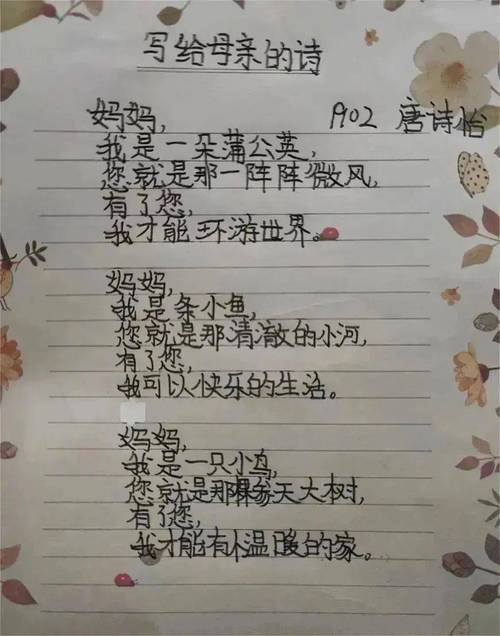 写给母亲的诗
1902 唐诗怡
妈妈,
我是一朵蒲公英,
您就是那一阵阵微风,
有了您,
我才能环游世界。
妈妈,
我是条小鱼,
您就是那清澈的小河,
有了您,
我可以快乐的生活。
妈妈,
我是一只小鸟,
您就是那棵参天大树,
有了您,
我才能有个温暖的家。